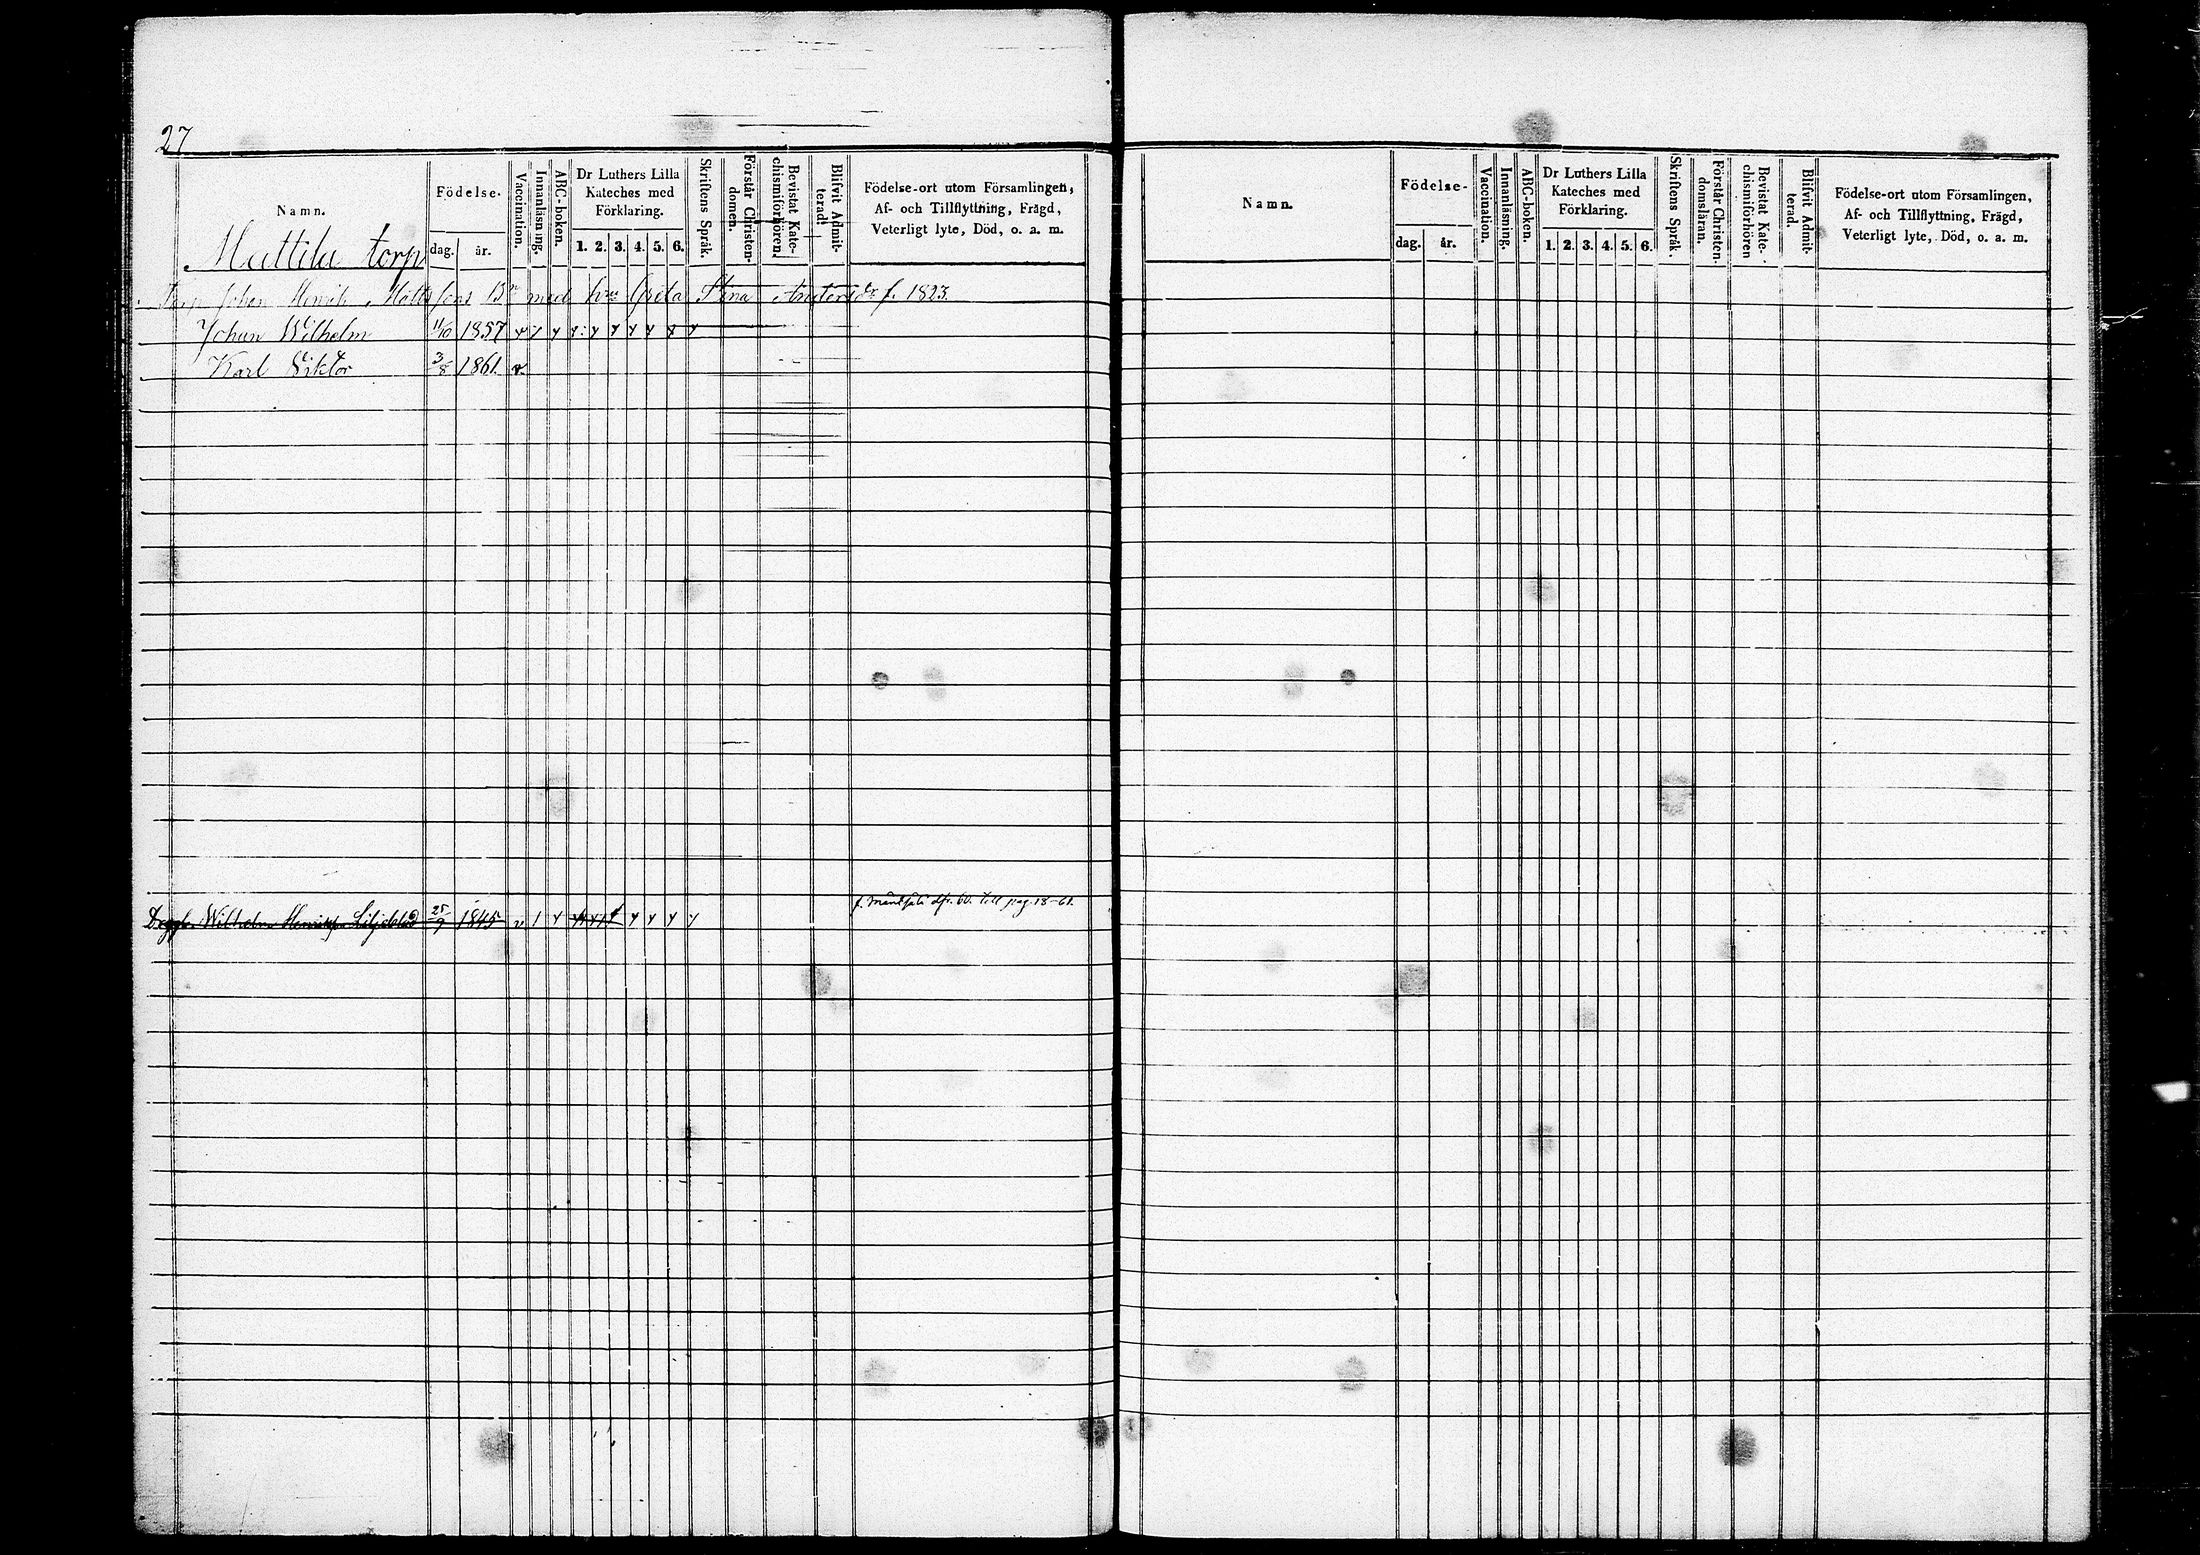 27
Namn.
Födelse-
dag. år.
Vaccination.
Innanläsning.
ABC-boken.
Dr Luthers Lilla
Kateches med
Förklaring.
1. 2. 3. 4. 5. 6.
Skriftens Språk.
Förstår Christen-
domen.
Bevistat Kate-
chismiförhören.
Blifvit Admit-
terad.
Födelse-ort utom Församlingen,
Af- och Tillflyttning, Frägd,
Veterligt lyte, Död, o. a. m.
Mattila torp
Torp. Johan Henrik Mattssons Bn med hu Greta Stina Anders dr f. 1823.
Johan Wilhelm 11/10 1857
Karl Viktor 3/8 1861. v.
Wilhelm Liljeblad 25/9 1845 v
till pag. 18-61.
Namn.
Födelse-
dag. år.
Vaccination.
Innanläsning.
ABC-boken.
Dr Luthers Lilla
Kateches med
Förklaring.
1. 2. 3. 4. 5. 6.
Skriftens Språk.
Förstår Christen-
domsläran.
Bevistat Kate-
chismiförhören
Blifvit Admit-
terad.
Födelse-ort utom Församlingen,
Af- och Tillflyttning, Frägd,
Veterligt lyte, Död, o. a. m.